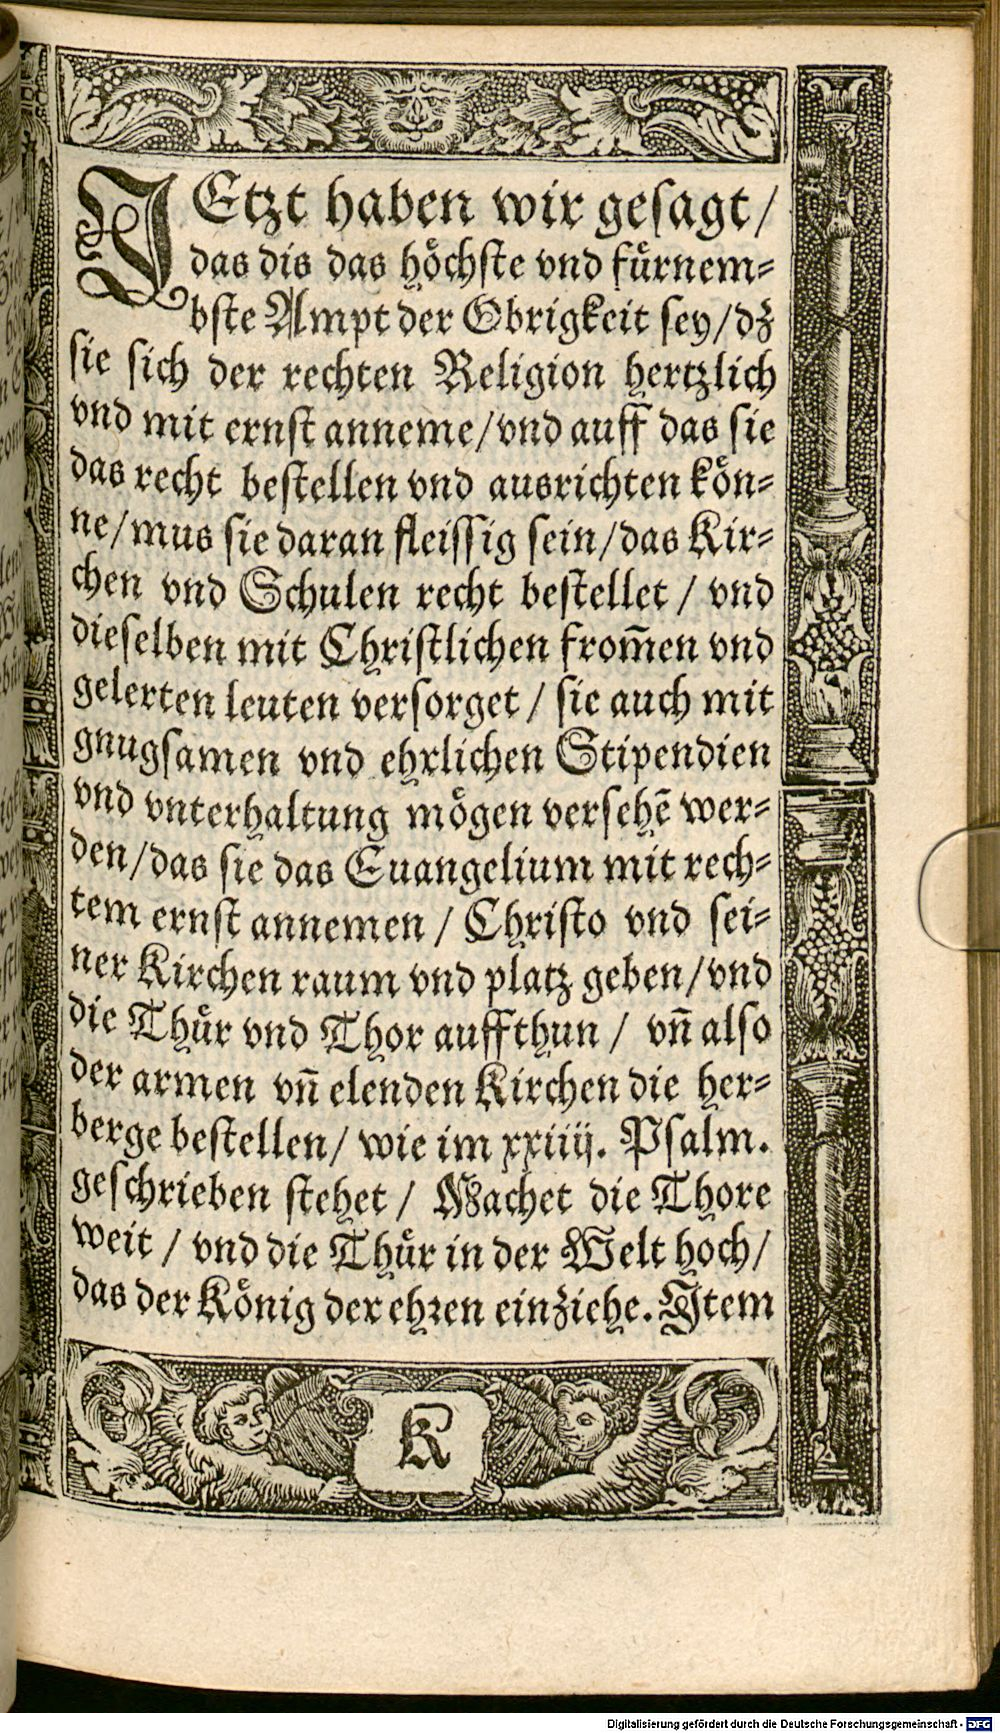 JEtzt haben wir gesagt/
das dis das höchste vnd fürnem-
bste Ampt der Obrigkeit sey/dz
sie sich der rechten Religion hertzlich
vnd mit ernst anneme/vnd auff das sie
das recht bestellen vnd ausrichten kön-
ne/mus sie daran fleissig sein/das Kir-
chen vnd Schulen recht bestellet / vnd
dieselben mit Christlichen from̄en vnd
gelerten leuten versorget / sie auch mit
gnugsamen vnd ehrlichen Stipendien
vnd vnterhaltung mögen versehē wer-
den/das sie das Euangelium mit rech-
tem ernst annemen / Christo vnd sei-
ner Kirchen raum vnd platz geben/vnd
die Thür vnd Thor auffthun / vn̄ also
der armen vn̄ elenden Kirchen die her-
berge bestellen/ wie im xxiiij. Psalm.
geschrieben stehet / Machet die Thore
weit / vnd die Thür in der Welt hoch/
das der König der ehren einziehe. Item
K
Digitalisierung gefördert durch die Deutsche Forschungsgemeinschaft - DFG